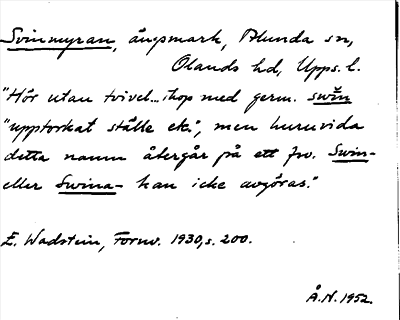 Svinmyran, ängsmark, Alunda sn,
Olands hd, Upps. l.
"Hör utan tvivel... ihop med germ. swīn
"upptorkat ställe etc.", men huruvida
detta namn återgår på ett fsv. Swin-
eller Swina- kan icke avgöras."
E. Wadstein, Fornv. 1930, s. 200.
Å.N. 1952.